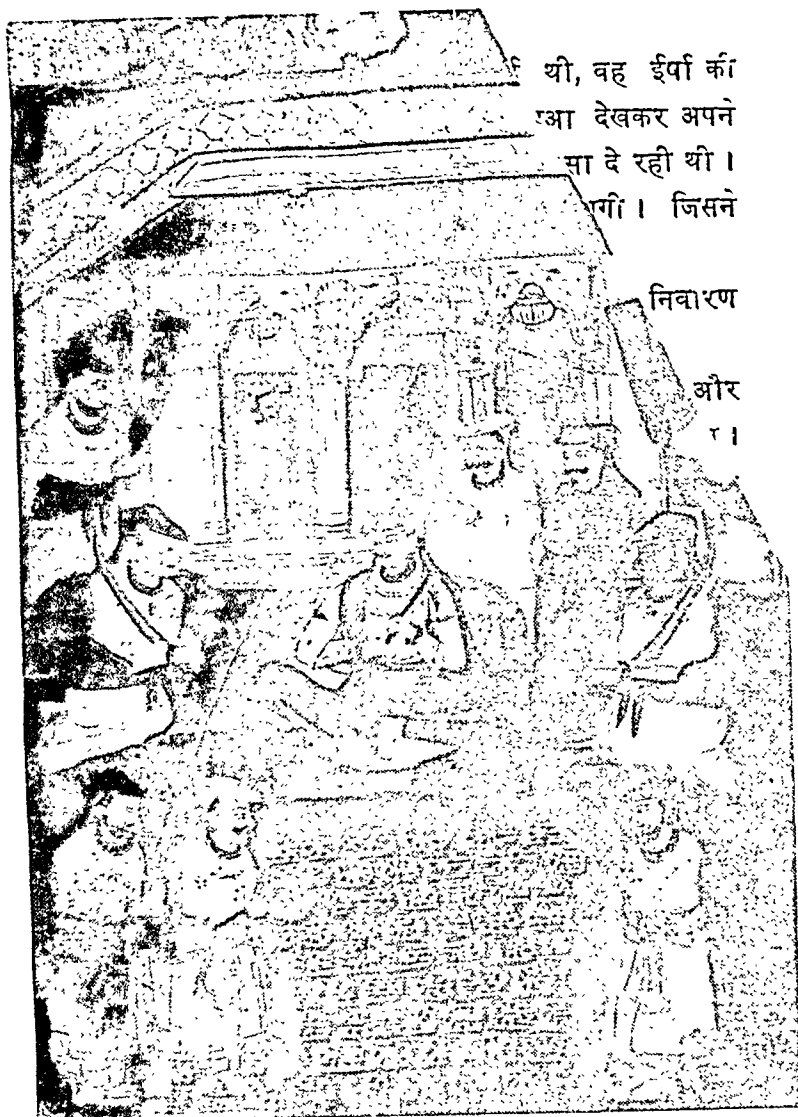 थी, वह ईर्षा की
देखकर अपने
दे रही थी ।
। जिसने
निवारण
और
।